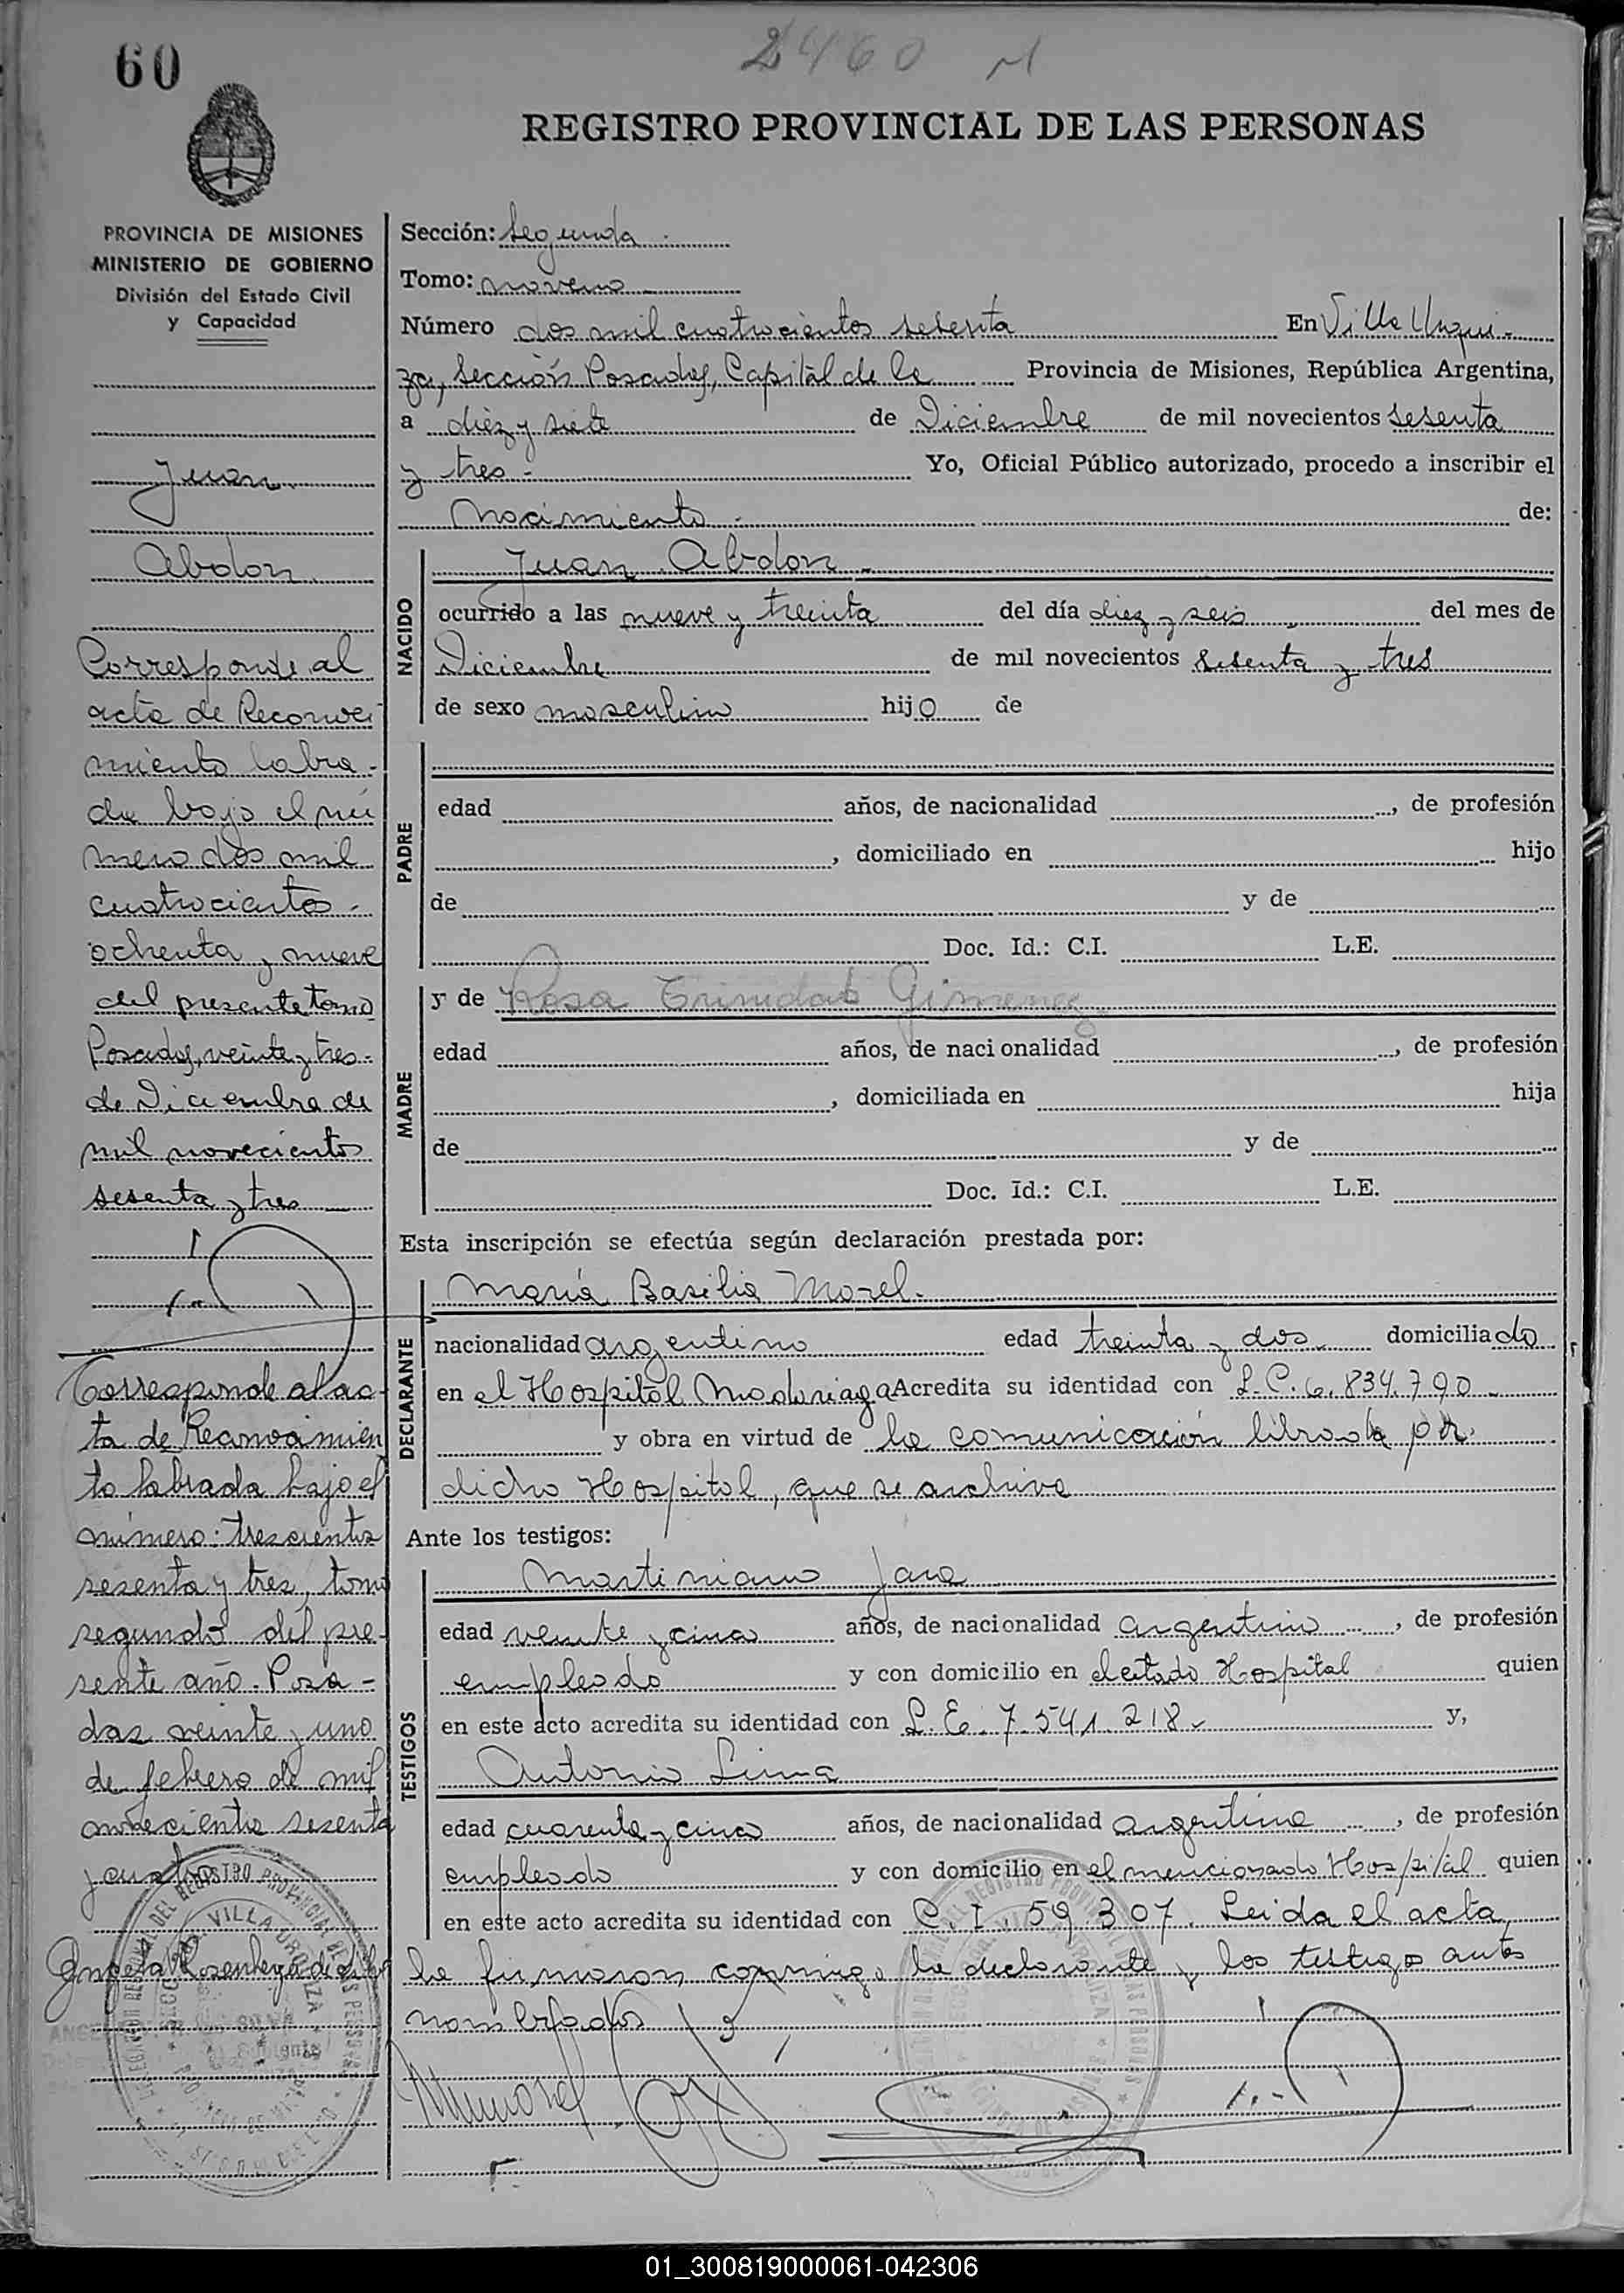 60
2460
REGISTRO PROVINCIAL DE LAS PERSONAS
PROVINCIA DE MISIONES
MINISTERIO DE GOBIERNO
División del Estado Civil
y Capacidad
Juan
Abdon
Corresponde al
acta de Reconoci
miento labra-
da bajo el nú
mero dos mil
cuatrocientos
ochenta y nueve
del presente tomo
Posadas, veinte y tres-
de Diciembre de
mil novecientos
sesenta y tres
Corresponde al ac-
ta de Reconocimien
to labrada bajo el
número: trescientos
sesenta y tres, tomo
segundo del pre-
sente año. Posa-
das veinte y uno
de febrero de mil
novecientos sesenta
y cuatro
Sección: Segunda.
Tomo: noveno
Número dos mil cuatrocientos sesenta En Villa Urqui-
za, Sección Posadas, Capital de la Provincia de Misiones, República Argentina,
a diez y siete de Diciembre de mil novecientos sesenta
y tres.- Yo, Oficial Público autorizado, procedo a inscribir el
Nacimiento.- de:
NACIDO
Juan Abdon.-
ocurrido a las nueve y treinta del día diez y seis del mes de
Diciembre de mil novecientos sesenta y tres
de sexo masculino hijo de
PADRE
edad años, de nacionalidad , de profesión
, domiciliado en hijo
de y de
Doc. Id.: C.I. L.E.
MADRE
y de Rosa Trinidad Gimenez
edad años, de naci onalidad , de profesión
, domiciliada en hija
de y de
Doc. Id.: C.I. L.E.
Esta inscripción se efectúa según declaración prestada por:
DECLARANTE
María Basilia Morel.
nacionalidad argentino edad treinta y dos domiciliado
en el Hospital Madariaga Acredita su identidad con L.C. 6.834.790
y obra en virtud de la comunicación librada por
dicho Hospital, que se archiva
Ante los testigos:
TESTIGOS
Martiniano Jara
edad veinte y cinco años, de nacionalidad argentino , de profesión
empleado y con domicilio en el citado Hospital quien
en este acto acredita su identidad con L.E. 7.541.218 y,
Antonio Lima
edad cuarenta y cinco años, de nacionalidad argentino , de profesión
empleado y con domicilio en el mencionado Hospital quien
en este acto acredita su identidad con C.I. 59.307. Leida el acta,
la firmaron conmigo la declarante y los testigos antes
nombrados
01_300819000061-042306